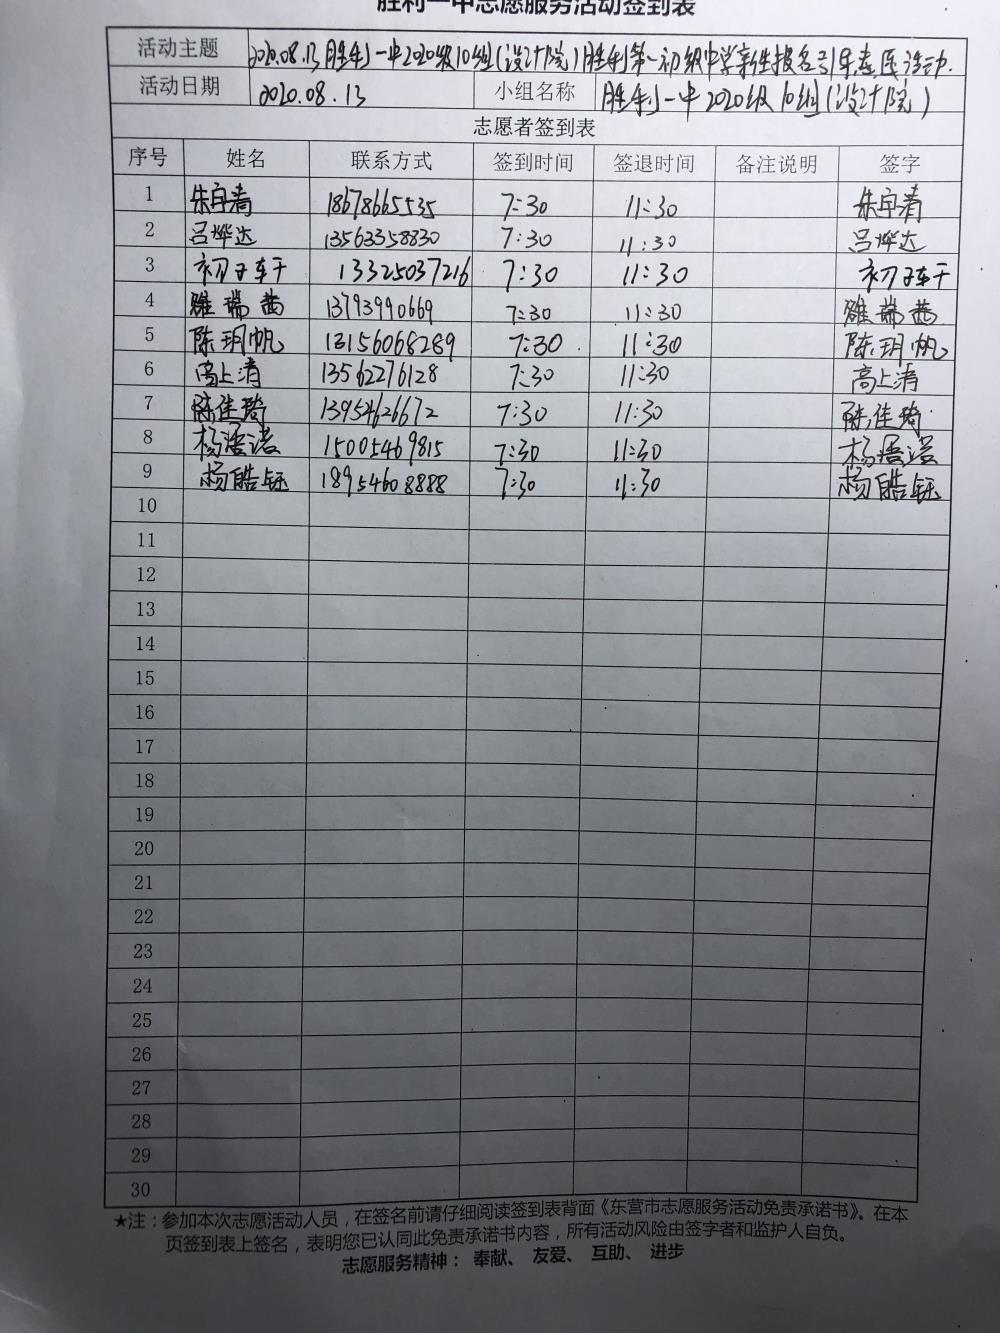 胜利一中志愿服务活动签到表
活动主题 2020.08.13胜利一中2020级10组(设计院)胜利第一初级中学新生报名引导志愿活动.
活动日期 2020.08.13 小组名称 胜利一中2020级10组(设计院)
志愿者签到表
序号 姓名 联系方式 签到时间 签退时间 备注说明 签字
1 朱宇清 18678665535 7:30 11:30 朱宇清
2 吕烨达 13563358830 7:30 11:30 吕烨达
3 初子轩 13325037216 7:30 11:30 初子轩
4 雒瑞茜 13793990669 7:30 11:30 雒瑞茜
5 陈玥帆 13156068289 7:30 11:30 陈玥帆
6 高上清 13562276128 7:30 11:30 高上清
7 陈佳琦 13954626672 7:30 11:30 陈佳琦
8 杨 15005469815 7:30 11:30 杨
9 杨皓钰 18954608888 7:30 11:30 杨皓钰
10
11
12
13
14
15
16
17
18
19
20
21
22
23
24
25
26
27
28
29
30
★注：参加本次志愿活动人员，在签名前请仔细阅读签到表背面《东营市志愿服务活动免责承诺书》。在本
页签到表上签名，表明您已认同此免责承诺书内容，所有活动风险由签字者和监护人自负。
志愿服务精神： 奉献、 友爱、 互助、 进步